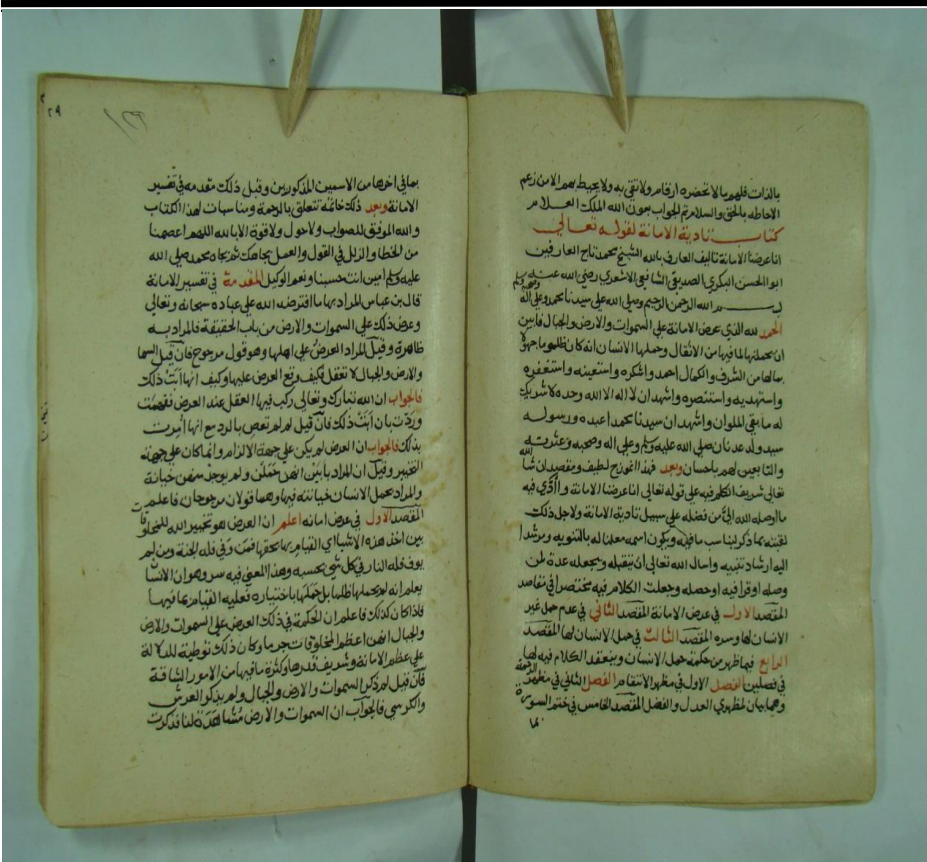 بالذات فلهو بما لا تحصره ارقام ولا تفى به ولا يحيط بهم الا من زعم
الاحاطه بالحق والسلام تم الجواب بعون الله الملك العلام
كتاب تادية الامانة لقوله تعالى
انا عرضنا الامانة تاليف العارف بالله الشيخ محمد تاج العارفين
ابو الحسن البكري الصديقي الشافعي الاشعري رضي الله عنه
بسم الله الرحمن الرحيم وصلى الله على سيدنا محمد وعلى اله وصحبه وسلم
الحمد لله الذي عرض الامانة على السموات والارض والجبال فابين
ان يحملنها لما فيها من الاثقال وحملها الانسان انه كان ظلوما جهولا
بما لها من الشرف والكمال احمد واشكره واستعينه واستغفره
واستهديه واستنصره واشهد ان لا اله الا الله وحده لا شريك
له ما بقي الملوان واشهد ان سيدنا محمدا عبده ورسوله
سيد ولد عدنان صلى الله عليه وسلم وعلى اله وصحبه وعترته
والتابعين لهم باحسان وبعد فهذا انموذج لطيف ومقصد ان شا الله
تعالى شريف الكلام فيه على قوله تعالى انا عرضنا الامانة واأدي فيه
ما اوصله الله اليَّ من فضله على سبيل تادية الامانة ولاجل ذلك
لقبته بما ذكر ليناسب ما فيه ويكون اسمه معلنا له بالتنويه ومرشدا
اليه ارشاد تنبيه واسال الله تعالى ان يتقبله ويجعله عدة لمن
وصله او قرا فيه او حصله وجعلت الكلام فيه مختصرا في مقاصد
المقصد الاول في عرض الامانة المقصد الثاني في عدم حمل غير
الانسان لها وسره المقصد الثالث في حمل الانسان لها المقصد
الرابع فيما ظهر من حكمة حمل الانسان وينعقد الكلام فيه لها
في فصلين الفصل الاول في مظهر الانتقام الفصل الثاني في مظهر الرحمة
وهما بيان لمظهري العدل والفضل المقصد الخامس في ختم السورة
بما
٢٩
١٢٩
بما في اخرها من الاسمين المذكورين وقبل ذلك مقدمه في تفسير
الامانة وبعد ذلك خاتمه تتعلق بالرحمة ومناسبات لهذا الكتاب
والله الموفق للصواب ولا حول ولا قوة الا بالله اللهم اعصمنا
من الخطا والزلل في القول والعمل بجاهك ثم بجاه محمد صلى الله
عليه وسلم امين انت حسبنا ونعم الوكيل المقدمة في تفسير الامانة
قال بن عباس المراد بها ما افترضه الله على عباده سبحانه وتعالى
وعرض ذلك على السموات والارض من باب الحقيقة فالمراد به
ظاهرة وقيل المراد العرض على اهلها وهو قول مرجوح فان قيل السما
والارض والجبال لا تعقل فكيف وقع العرض عليها وكيف انها أبت ذلك
فالجواب ان الله تبارك وتعالى ركب فيها العقل عند العرض ففهمت
وردت بان أبت ذلك فان قيل لم لم تعص بالرد مع انها أمرت
بذلك فالجواب ان العرض لم يكن على جهة الالزام وانما كان على جهة
التخيير وقيل ان المراد بابين انهن حملن ولم يوجد منهن خيانة
والمراد بحمل الانسان خيانته فيها وهما قولان مرجوحان فاعلم
المقصد الاول في عرض امانه اعلم ان العرض هو تخيير الله للمخلوقات
بين اخذ هذه الاشيا اي القيام بها بحقها فمن وفى فله الجنة ومن لم
يوف فله النار في كل شي بحسبه وهذا المعنى فيه سر وهو ان الانسان
يعلم انه لم يحملها ظلما بل حملها باختياره فعليه القيام بما فيها
فاذا كان كذلك فاعلم ان الحكمة في ذلك العرض على السموات والارض
والجبال انهن اعظم المخلوقات جرما وكان ذلك توطية للدلالة
على عظم الامانة وشريف قدرها وكثرة ما فيها من الامور الشاقة
فان قيل لم ذكر السموات والارض والجبال ولم يذكر العرش
والكرسي فالجواب ان السموات والارض مشاهدة لنا فذكرت